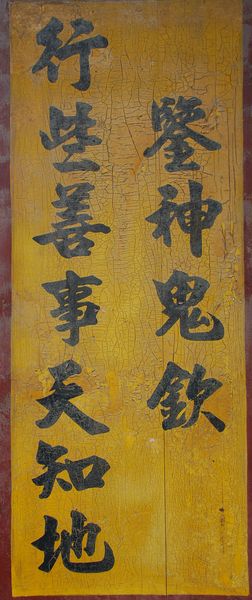 行些善事天知地
鑒神鬼欽